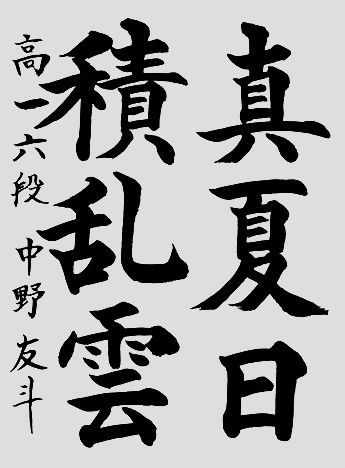 真夏日
積乱雲
高一六段 中野友斗